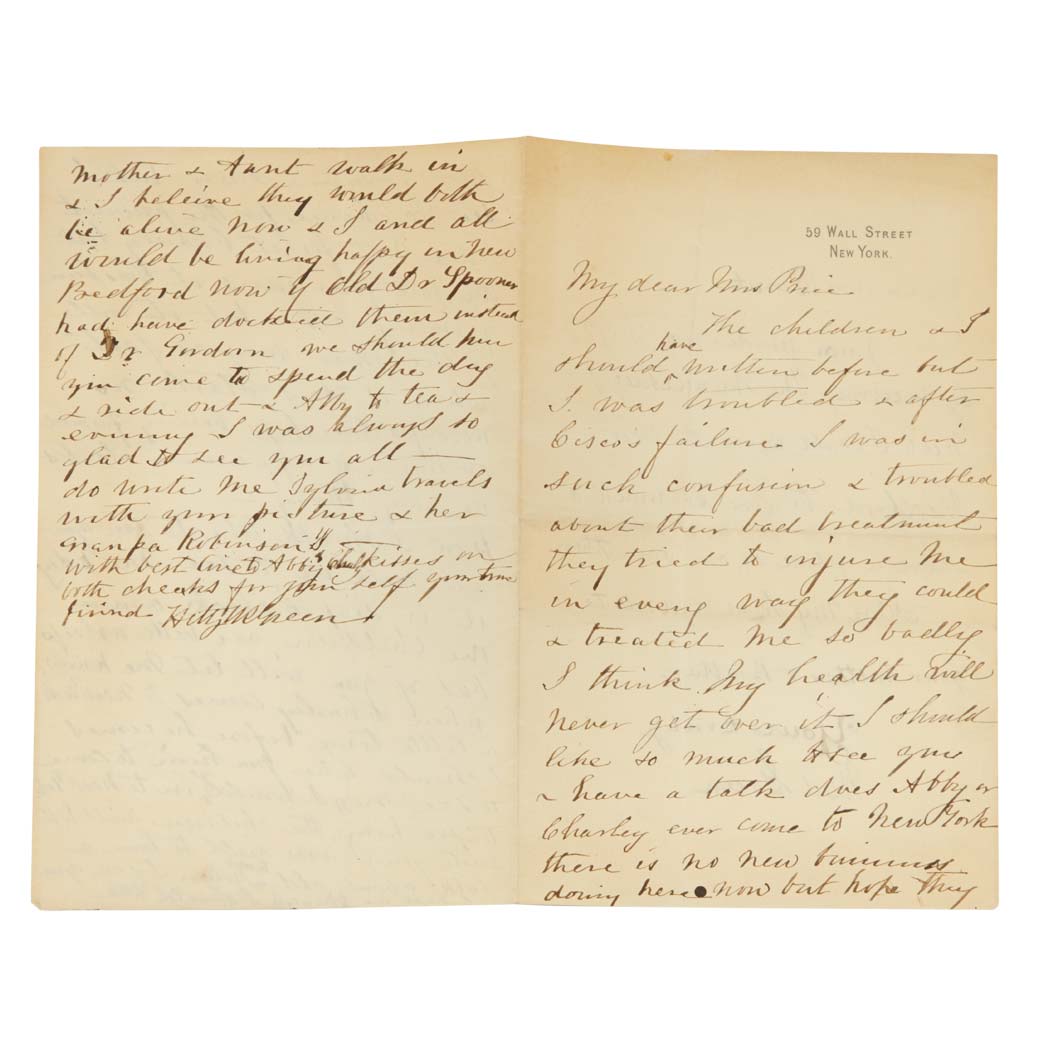 59 WALL STREET
NEW YORK.
My dear Mrs Price
The children & I
should have written before but
I was troubled & after
Cisco's failure I was in
such confusion & troubled
about their bad treatment
they tried to injure me
in every way they could
& treated me so badly
I think my health will
never get over it I should
like so much to see you
& have a talk does Abby or
Charley ever come to New York
there is no new business
doing here now but hope they
Mother & Aunt walk in
& I beleive they would both
be alive now & I and all
would be living happy in New
Bedford now if Old Dr Spooner
had have doctered them instead
of Dr Gordorn we should have
you come to spend the day
& ride out & Abby to tea &
evening I was always so
glad to see you all —
do write me Sylvia travels
with your picture & her
granpa Robinson's
with best love to Abby & kisses on
both cheeks for your self your true
friend Hetty H R Green